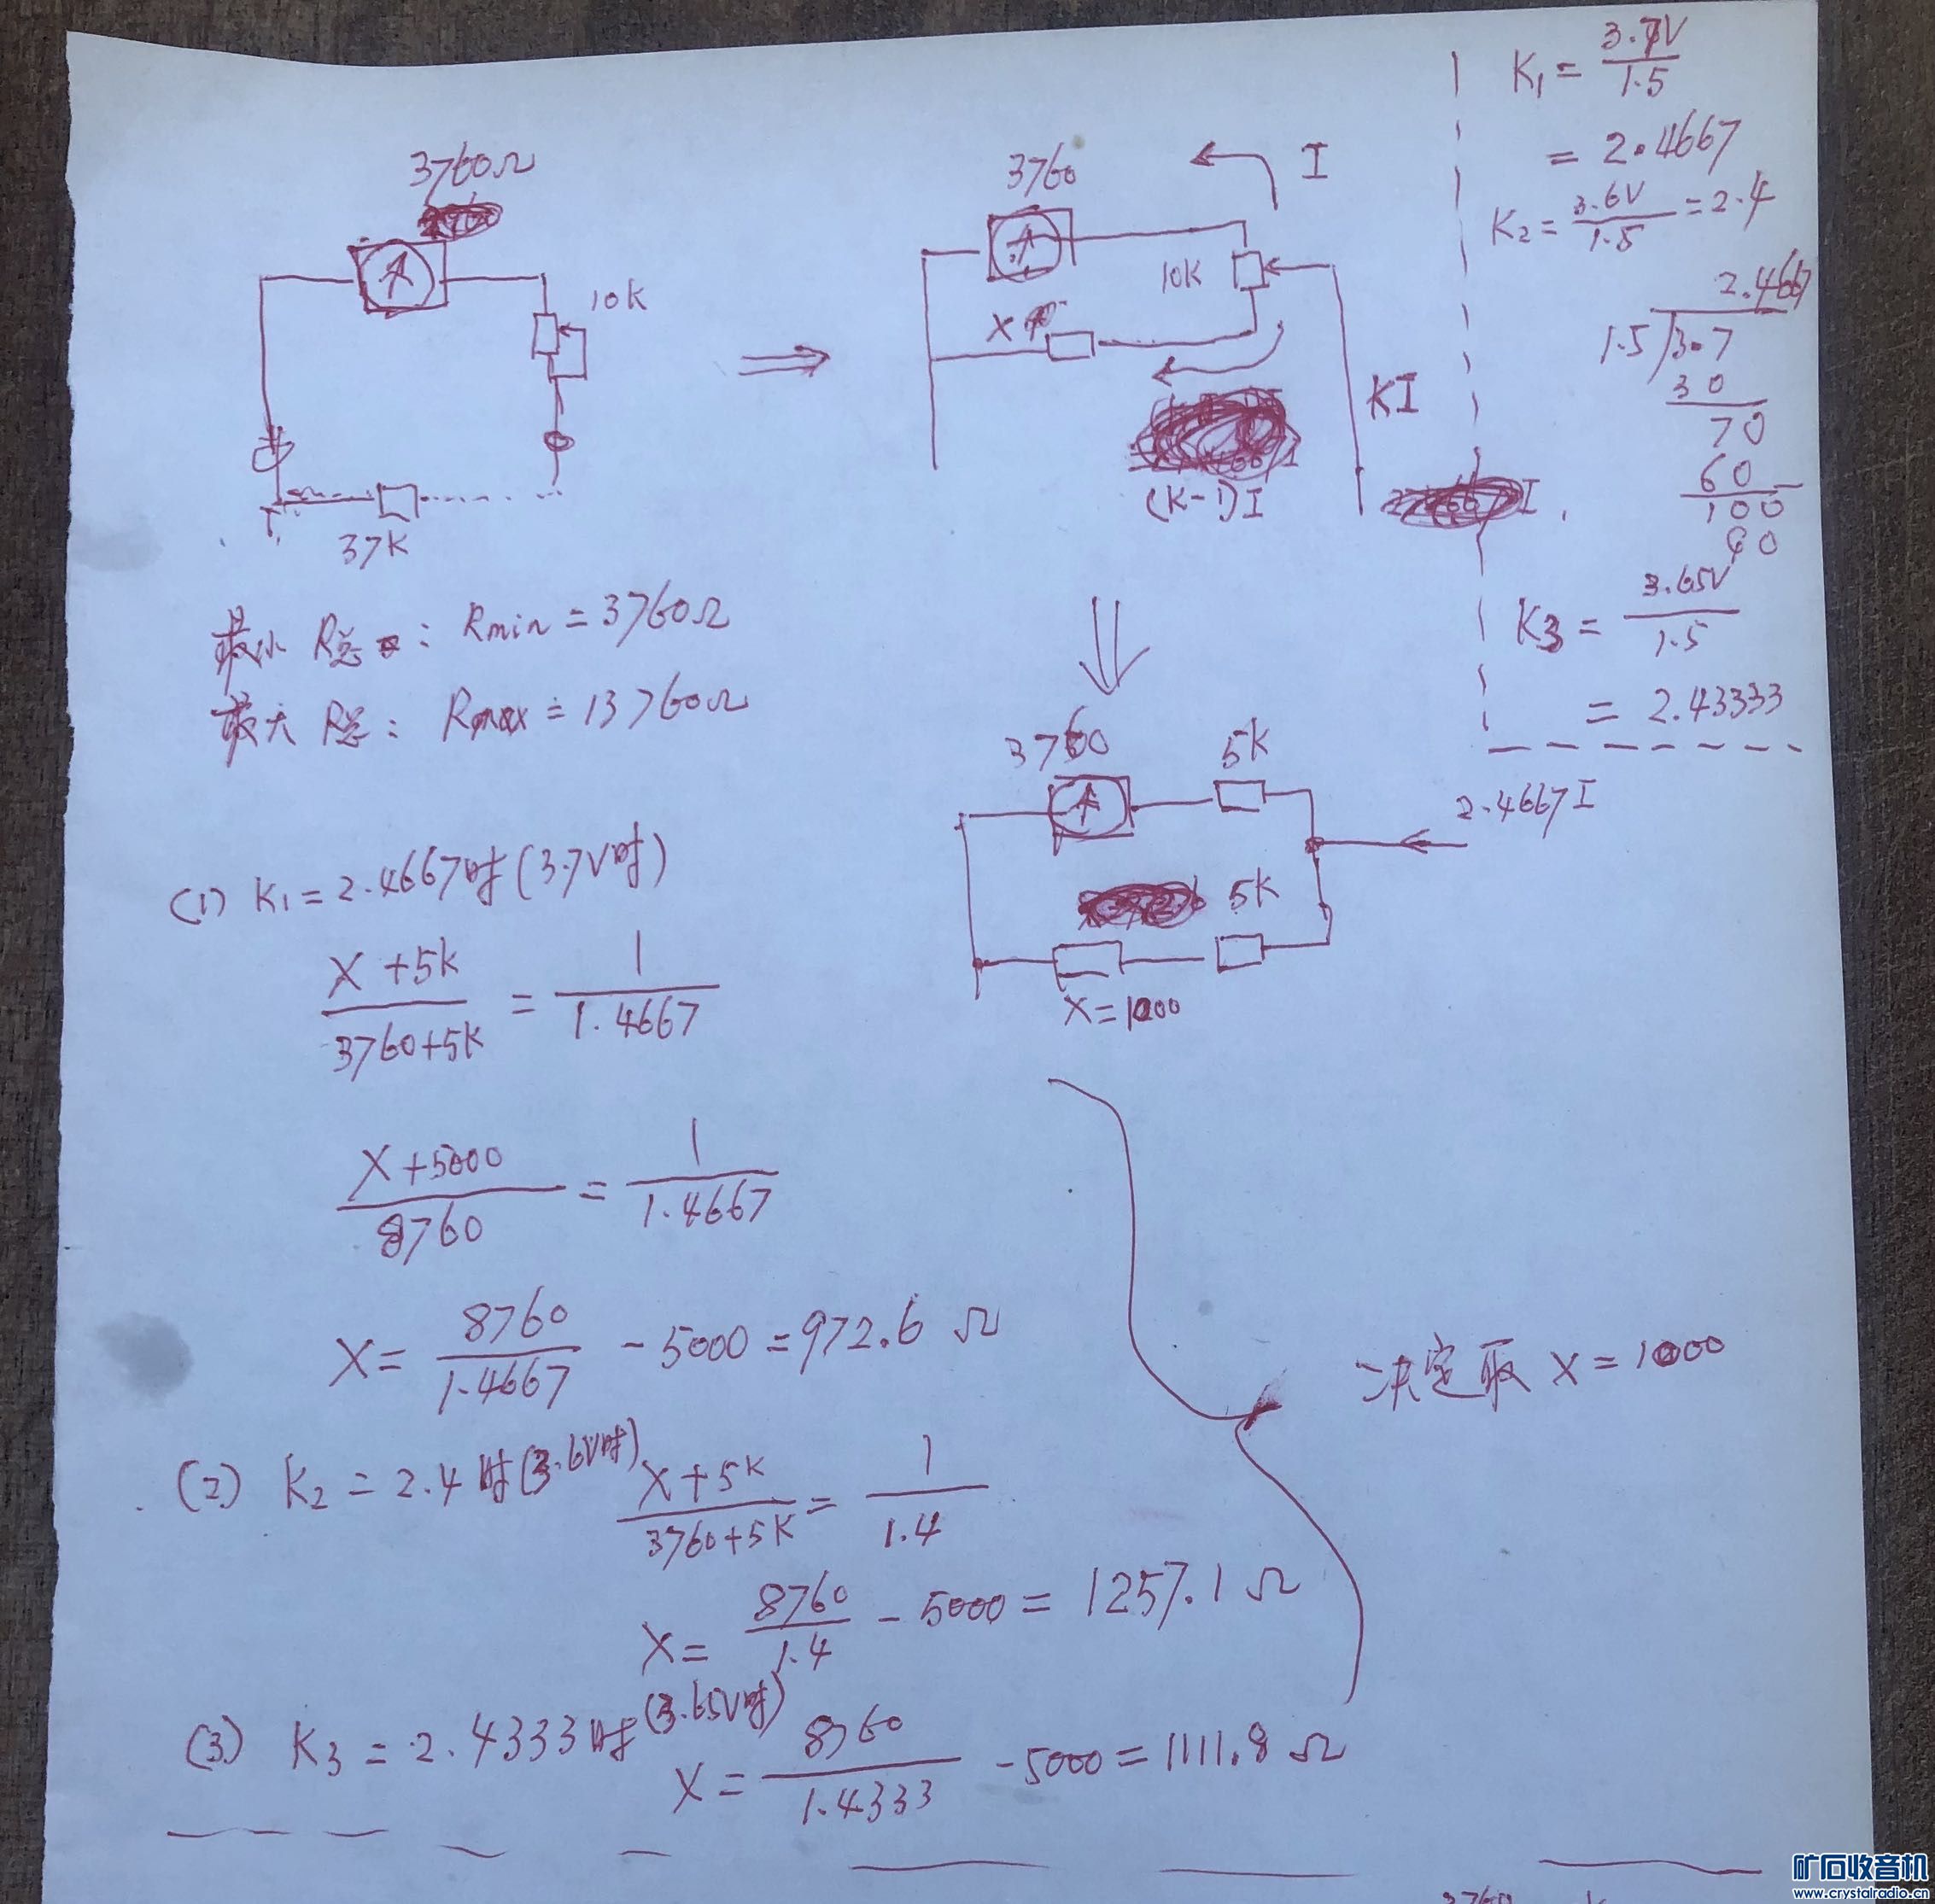 3760Ω
10K
37K
最小 R总 : Rmin = 3760Ω
最大 R总 : Rmax = 13760Ω
3760
I
10K
X
KI
(K-1)I
K₁ = 3.7V / 1.5
= 2.4667
K₂ = 3.6V / 1.5 = 2.4
2.4667
1.5 3.7
30
70
60
100
90
K3 = 3.65V / 1.5
= 2.43333
3760
5K
2.4667I
5K
X=1000
(1) K₁ = 2.4667时(3.7V时)
X+5K / 3760+5K = 1 / 1.4667
X+5000 / 8760 = 1 / 1.4667
X = 8760 / 1.4667 - 5000 = 972.6 Ω
决定取 X = 1000
(2) K₂ = 2.4时(3.6V时) X+5K / 3760+5K = 1 / 1.4
X = 8760 / 1.4 - 5000 = 1257.1 Ω
(3) K₃ = 2.4333时(3.65V时) X = 8760 / 1.4333 - 5000 = 1111.8 Ω
矿石收音机
www.crystalradio.cn